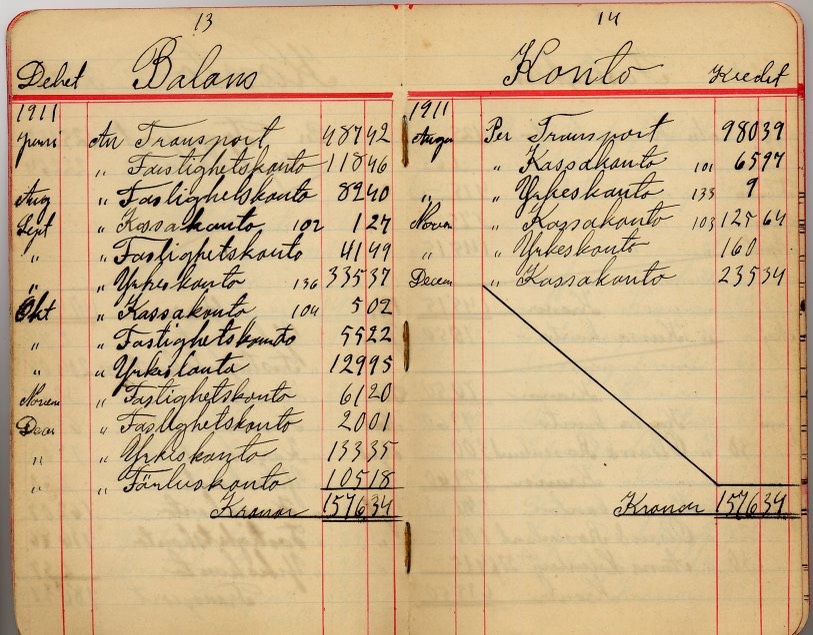 13
Debet Balans
1911
Juni An Transport 487 42
„ Fastighetskonto 118 46
Aug „ Fastighetskonto 82 40
Sept „ Kassakonto 102 1 27
„ „ Fastighetskonto 41 49
„ „ Yrkeskonto 136 335 37
Okt „ Kassakonto 104 5 02
„ „ Fastighetskonto 55 22
„ „ Yrkeskonto 129 95
Novem „ Fastighetskonto 61 20
Decem „ Fastighetskonto 20 01
„ „ Yrkeskonto 133 35
„ „ Förluskonto 105 18
Kronor 1576 34
14
Konto Kredit
1911
Augu Per Transport 980 39
„ „ Kassakonto 101 65 97
„ „ Yrkeskonto 133 9
Novem „ Kassakonto 103 125 64
„ Yrkeskonto 160
Decem „ Kassakonto 235 34
Kronor 1576 34